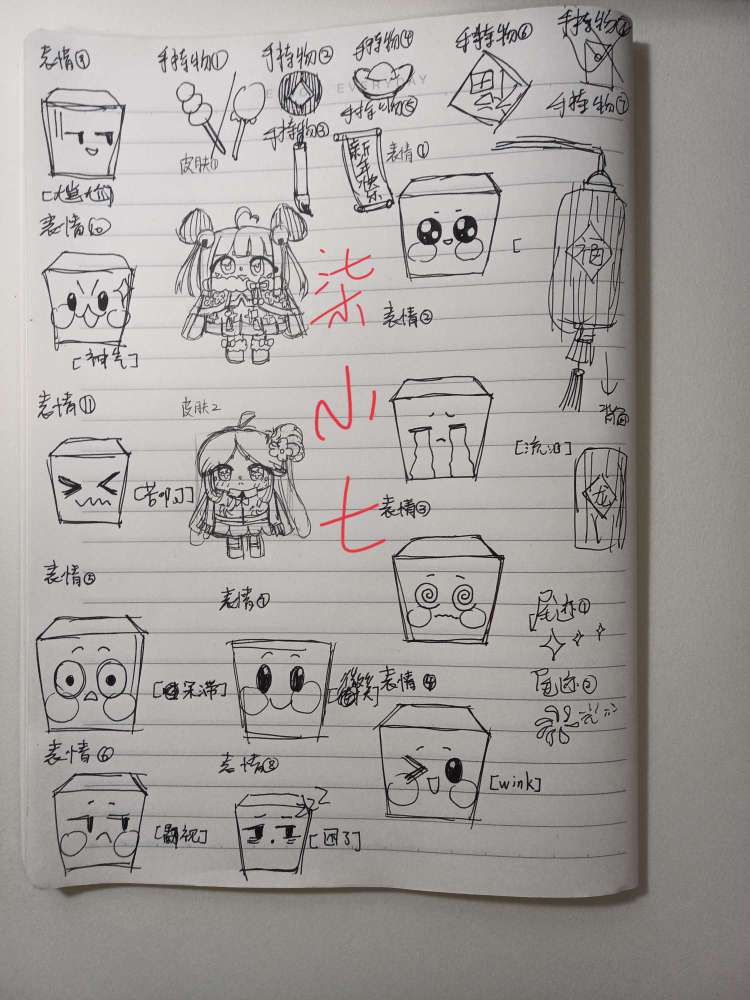 表情⑨
手持物①
手持物②
手持物④
手持物⑥
手持物⑧
手持物⑤
手持物⑦
手持物③
皮肤①
新年快乐
表情①
福
[尴尬]
表情⑩
柒小七
[
福
表情②
[神气]
表情⑪
皮肤2
背面
[流泪]
龙
表情③
表情⑤
表情⑦
尾迹①
[呆滞]
[微笑]
表情④
尾迹②
表情⑥
表情⑧
[wink]
zzz
[鄙视]
[困了]